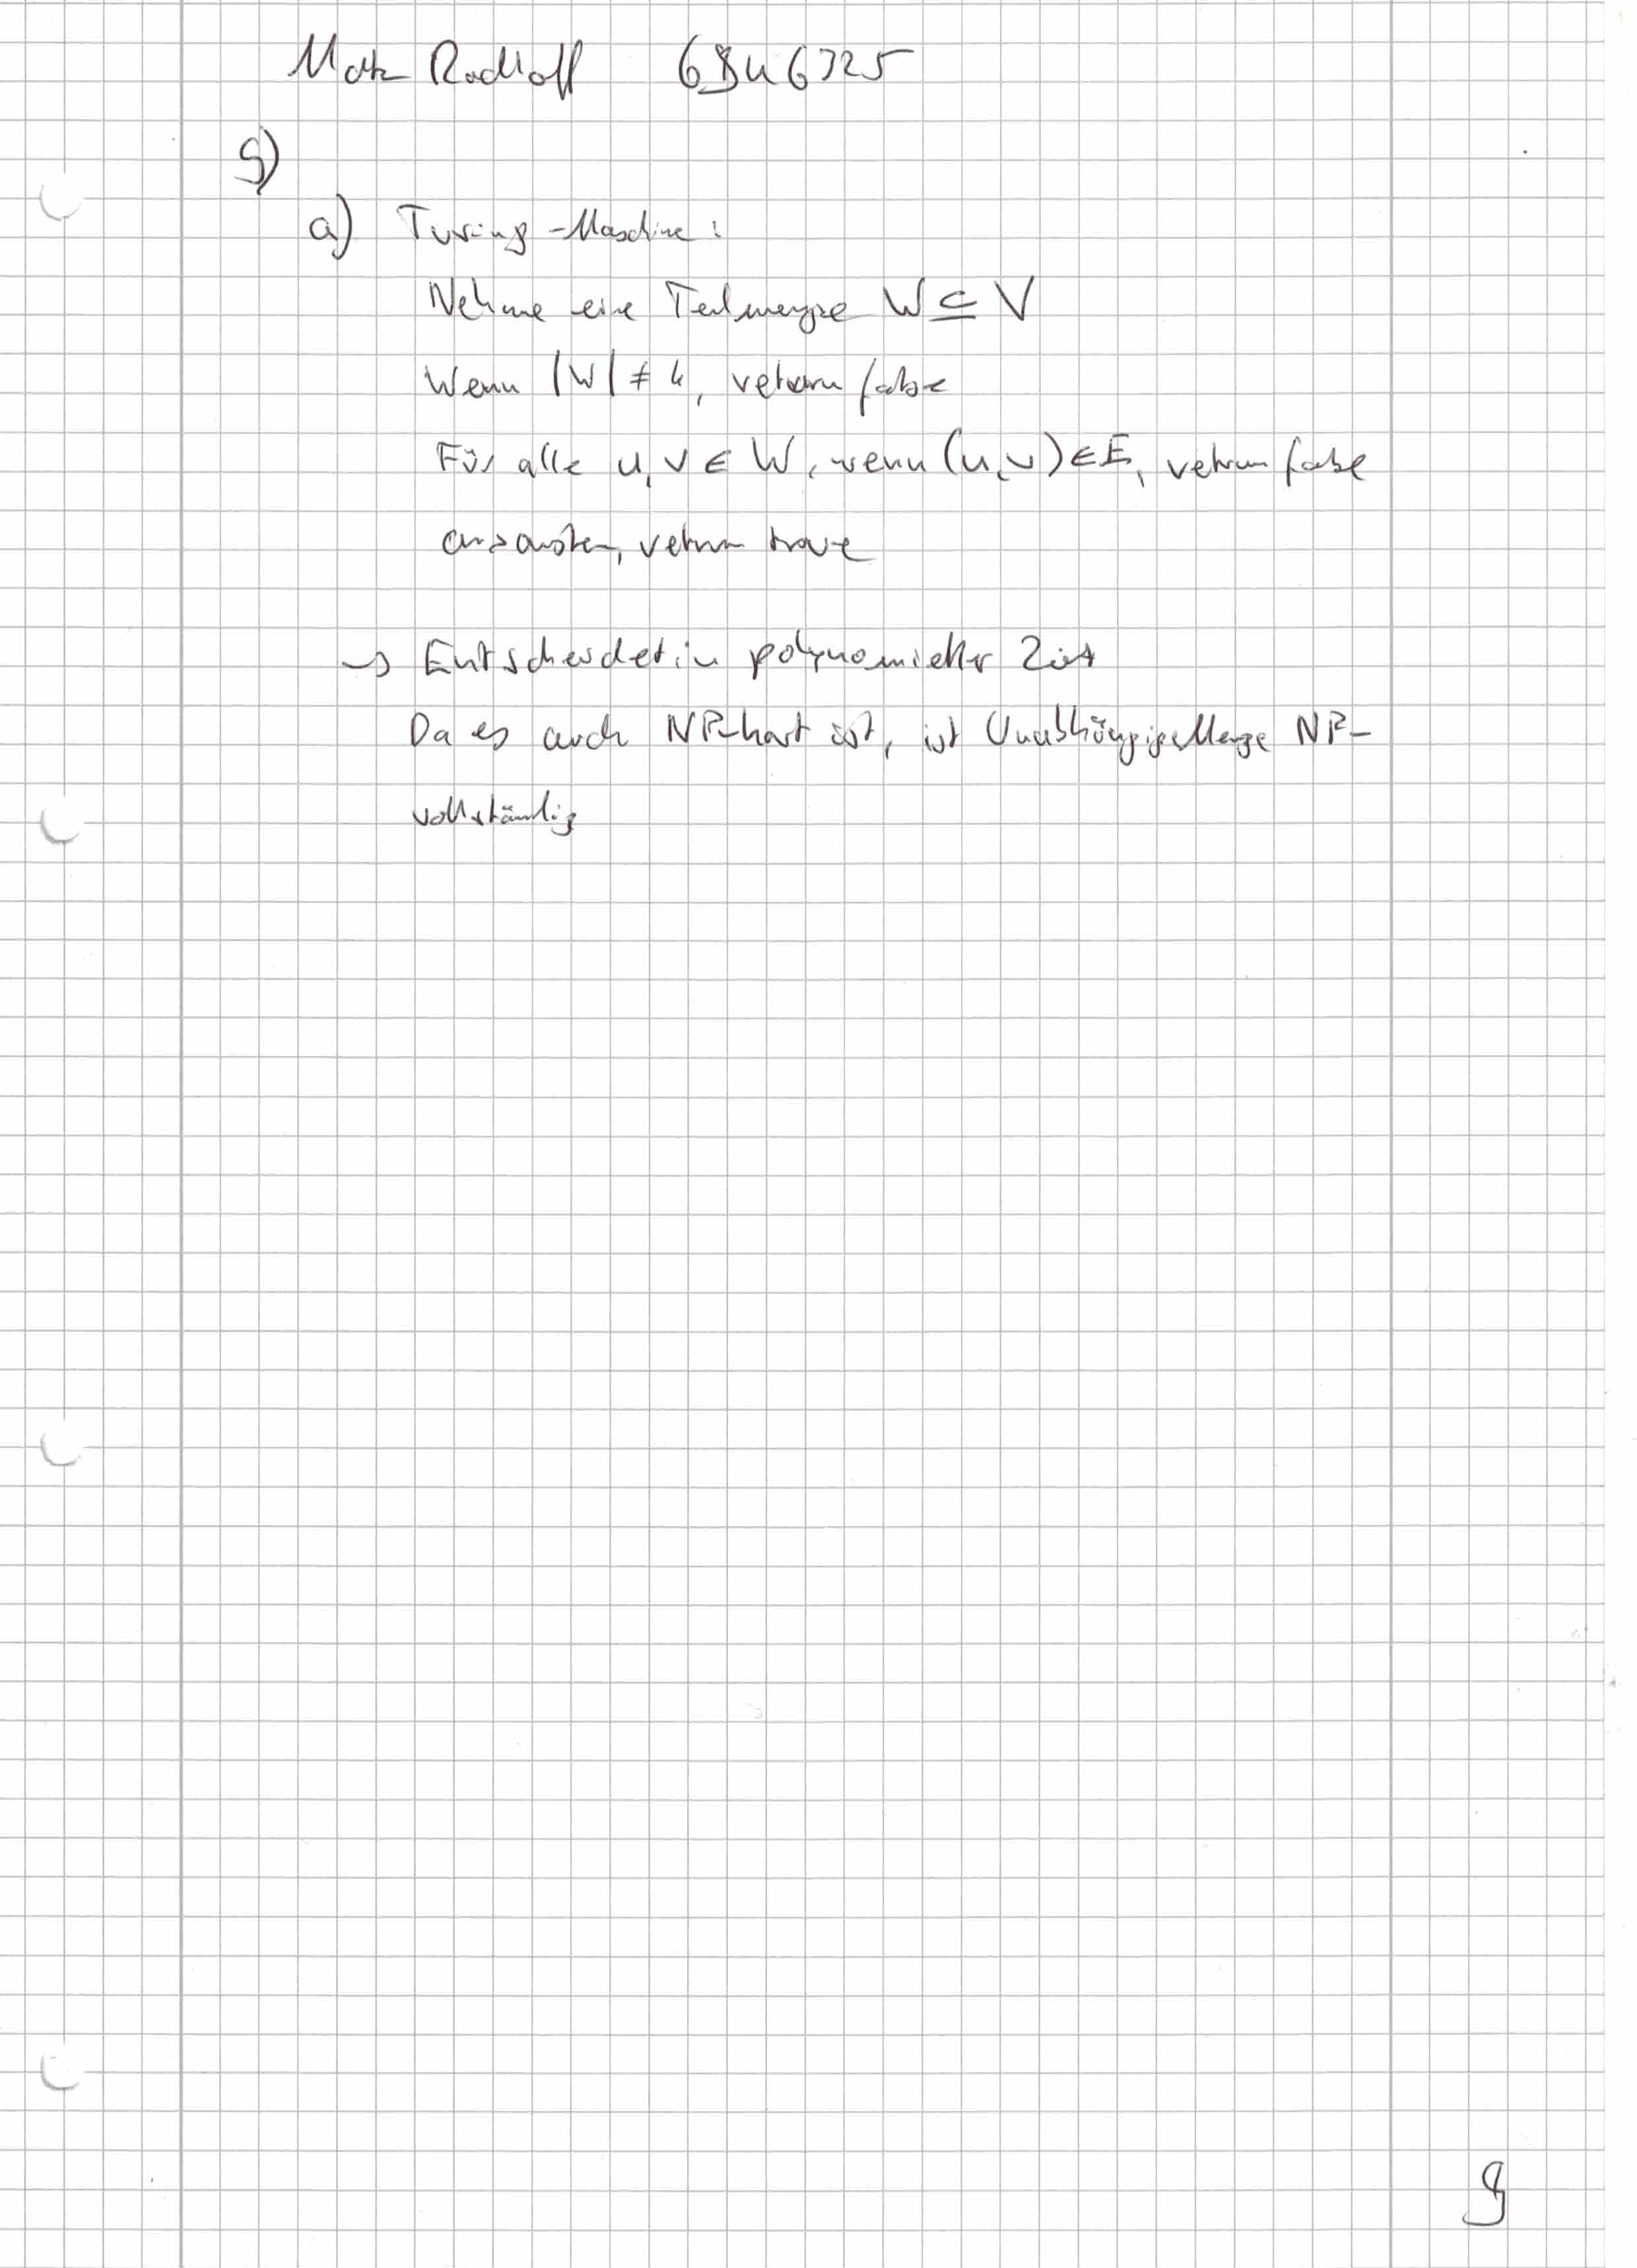 Radloff
9)
a) Turing-Maschine:
Nehme eine Teilmenge W ⊆ V
Wenn |W| ≠ k, return false
Für alle u, v ∈ W, wenn (u,v) ∈ E, return false
ansonsten, return true
→ Entscheidet in polynomieller Zeit
Da es auch NP-hart ist, ist Unabhängige Menge NP-
vollständig
9